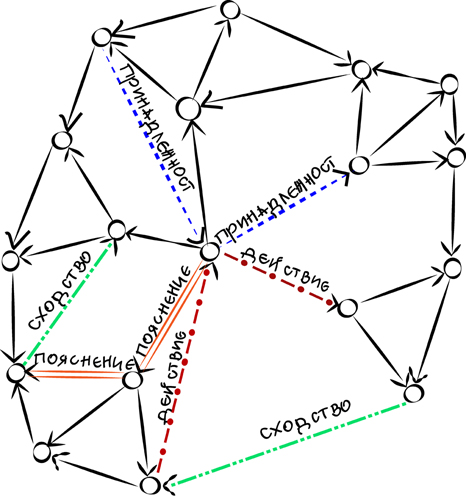 ПРИНАДЛЕЖНОСТ
ПРИНАДЛЕЖНОСТ
ДЕЙСТВИЕ
СХОДСТВО
ПОЯСНЕНИЕ
ПОЯСНЕНИЕ
ДЕЙСТВИЕ
СХОДСТВО